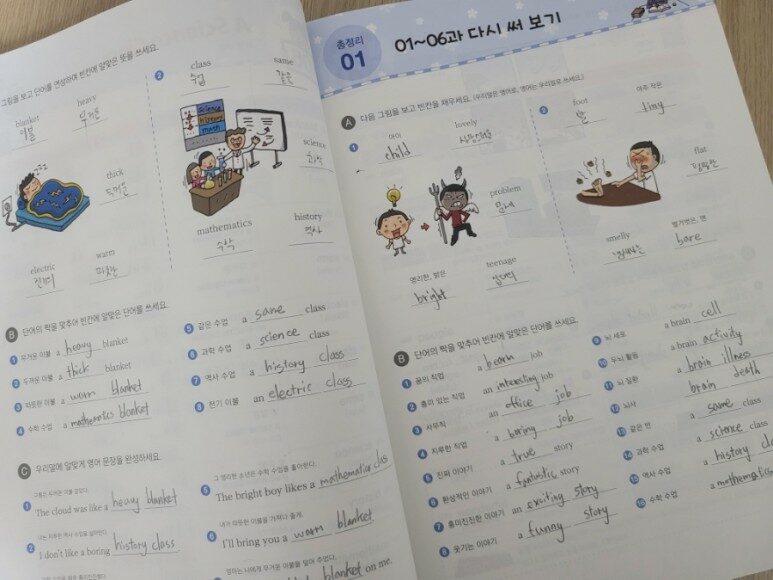 그림을 보고 단어를 연상하여 빈칸에 알맞은 뜻을 쓰세요.
blanket
이불
heavy
무거운
thick
두꺼운
electric
전기의
warm
따뜻한
2
class
수업
same
같은
science
history
math
science
과학
mathematics
수학
history
역사
B 단어의 짝을 맞추어 빈칸에 알맞은 단어를 쓰세요.
1 무거운 이불 a heavy blanket
2 두꺼운 이불 a thick blanket
3 따뜻한 이불 a warm blanket
4 수학 수업 a mathematics blanket
5 같은 수업 a same class
6 과학 수업 a science class
7 역사 수업 a history class
8 전기 이불 an electric class
C 우리말에 알맞게 영어 문장을 완성하세요.
1 구름은 무거운 이불 같았다.
The cloud was like a heavy blanket
2 나는 지루한 역사 수업을 싫어한다.
I don't like a boring history class
5 그 영리한 소년은 수학 수업을 좋아한다.
The bright boy likes a mathematics clas
6 내가 따뜻한 이불을 가져다 줄게.
I'll bring you a warm blanket
엄마는 나에게 무거운 이불을 덮어 주었다.
blanket on me.
총정리
01
01~06과 다시 써 보기
A 다음 그림을 보고 빈칸을 채우세요. (우리말은 영어로, 영어는 우리말로 쓰세요.)
1
아이
child
lovely
사랑스러운
problem
문제
영리한, 밝은
bright
teenage
십대의
foot
발
아주 작은
tiny
flat
평평한
smelly
냄새나는
벌거벗은, 맨
bare
B 단어의 짝을 맞추어 빈칸에 알맞은 단어를 쓰세요.
1 꿈의 직업 a job
2 흥미 있는 직업 an interesting job
3 사무직 an office job
4 지루한 직업 a boring job
5 진짜 이야기 a true story
6 환상적인 이야기 a fantistic story
7 흥미진진한 이야기 an exciting story
8 웃기는 이야기 a funny story
9 뇌 세포 a brain cell
10 두뇌 활동 a brain activity
11 뇌 질환 a brain illness
12 뇌사 brain death
13 같은 반 a same class
14 과학 수업 a science class
15 역사 수업 a history cl
16 수학 수업 a mathematic